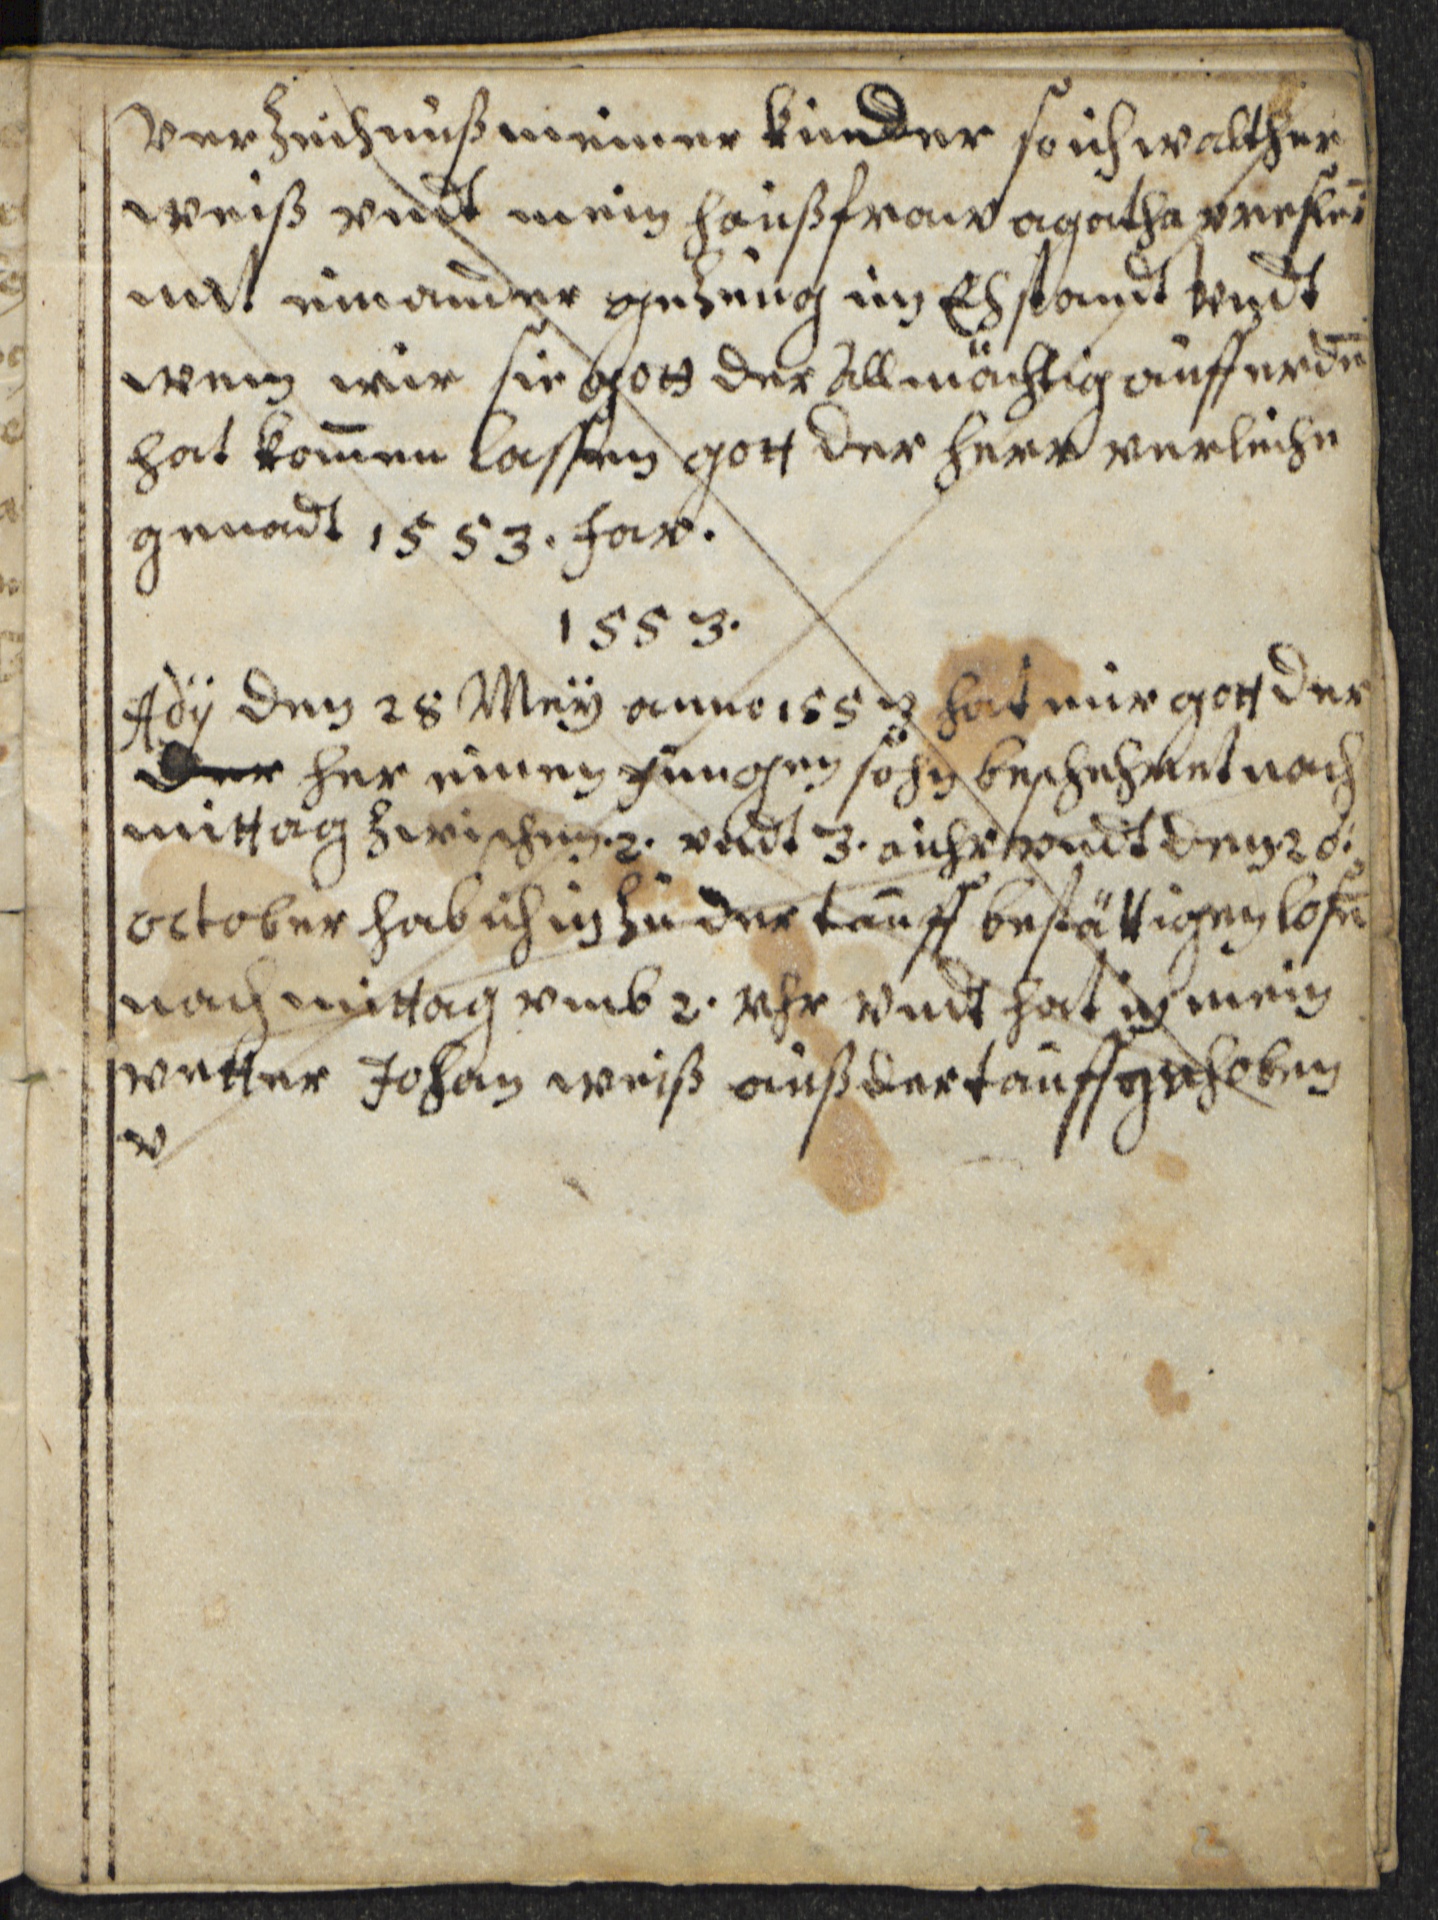 Verzeichnuß meiner kinder so ich walther
weiß vndt mein haußfraw agatha
mit einander gezeug im Ehstandt vndt
wem wir sie gott der Allmächtig auff erdē
hat kom̄en lassen gott der herr verleiche
genadt 1553. Jar.
1553.
Adÿ den 28 Meÿ anno 1553 hat mir gott der
der her einen jungen sohn beschehret nach
mittag zwischen .2. vndt 3. auhr vndt den
october hab ich in zu der tauff bestättigen losn̄
nach mittag vmb 2. vhr vndt hat in mein
vetter Johan weiß auß der tauff gehoben
v